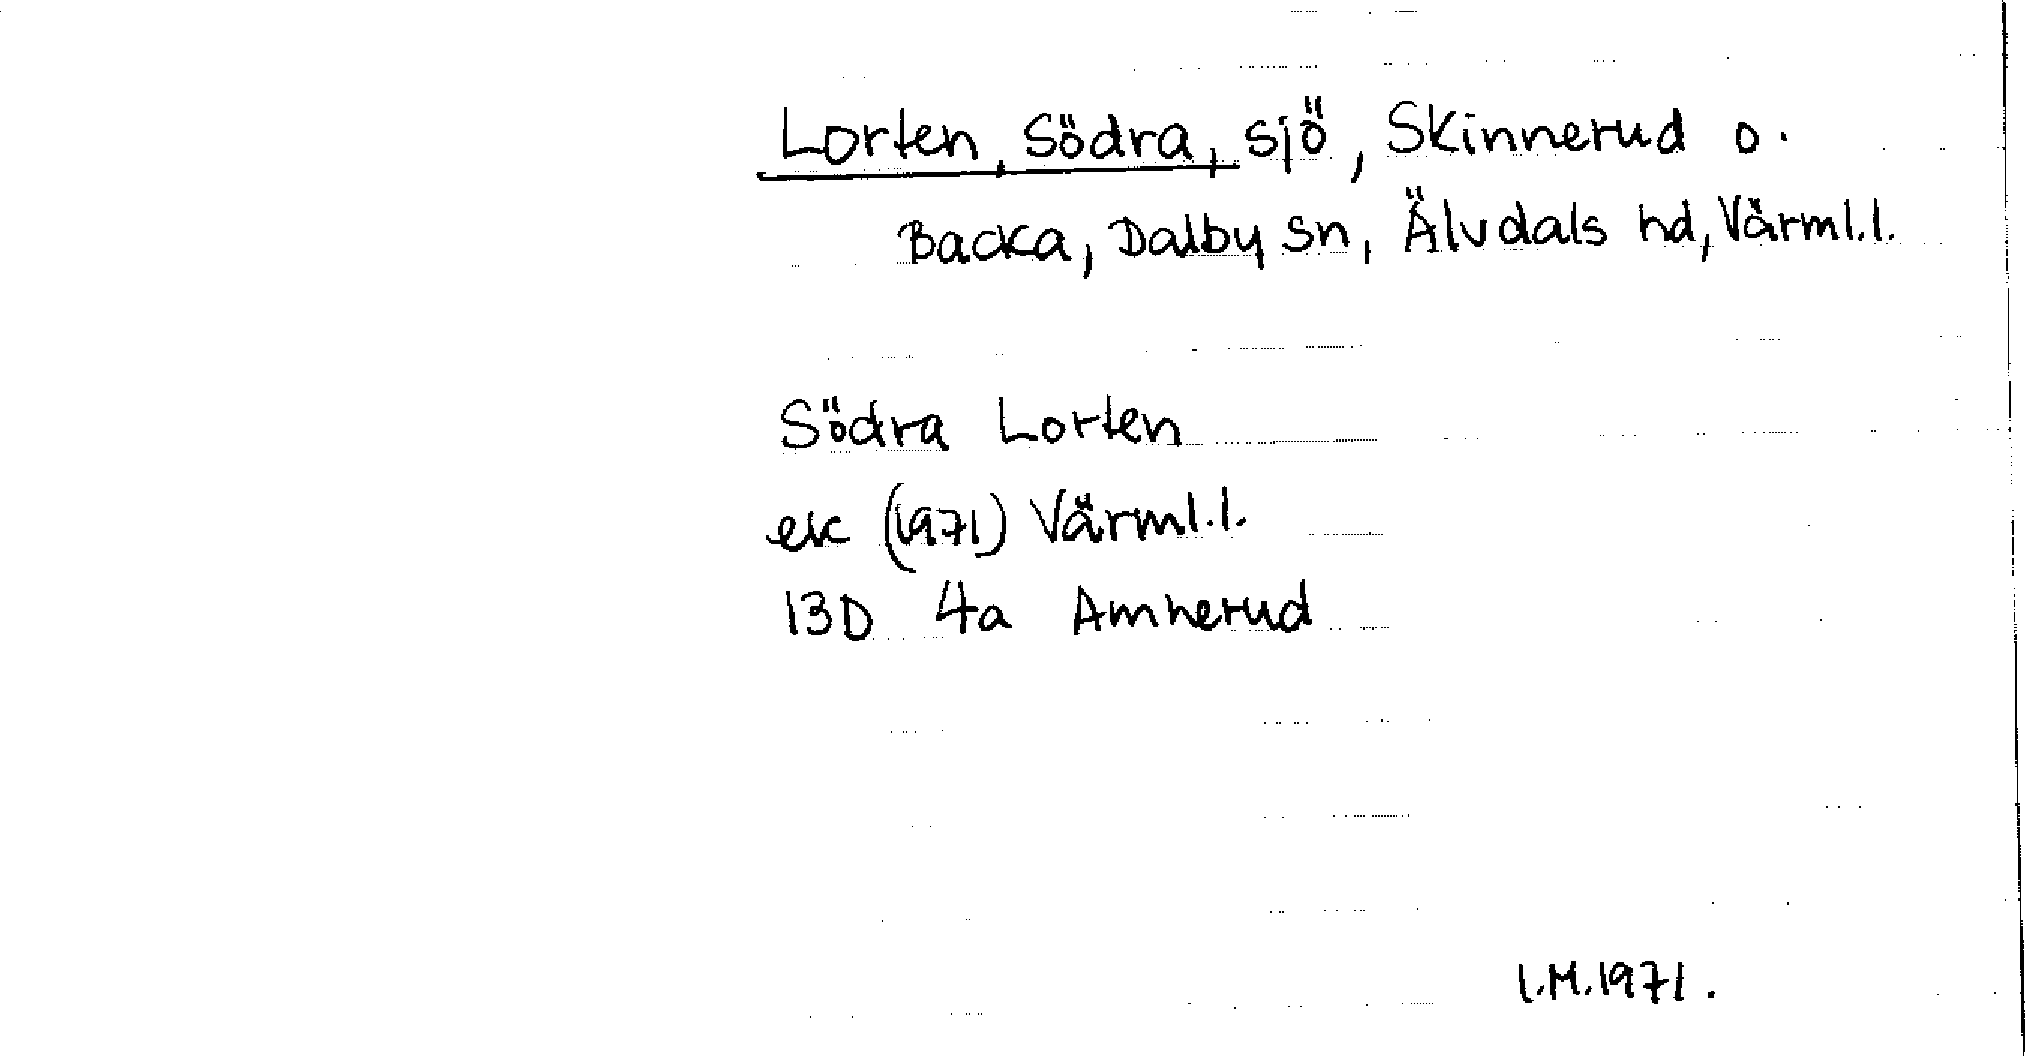 Lorten, Södra, sjö, Skinnerud o.
Backa, Dalby sn, Älvdals hd, Värml.l.
Södra Lorten
ek (1971) Värml.l.
13D 4a Amnerud
I.M.1971.